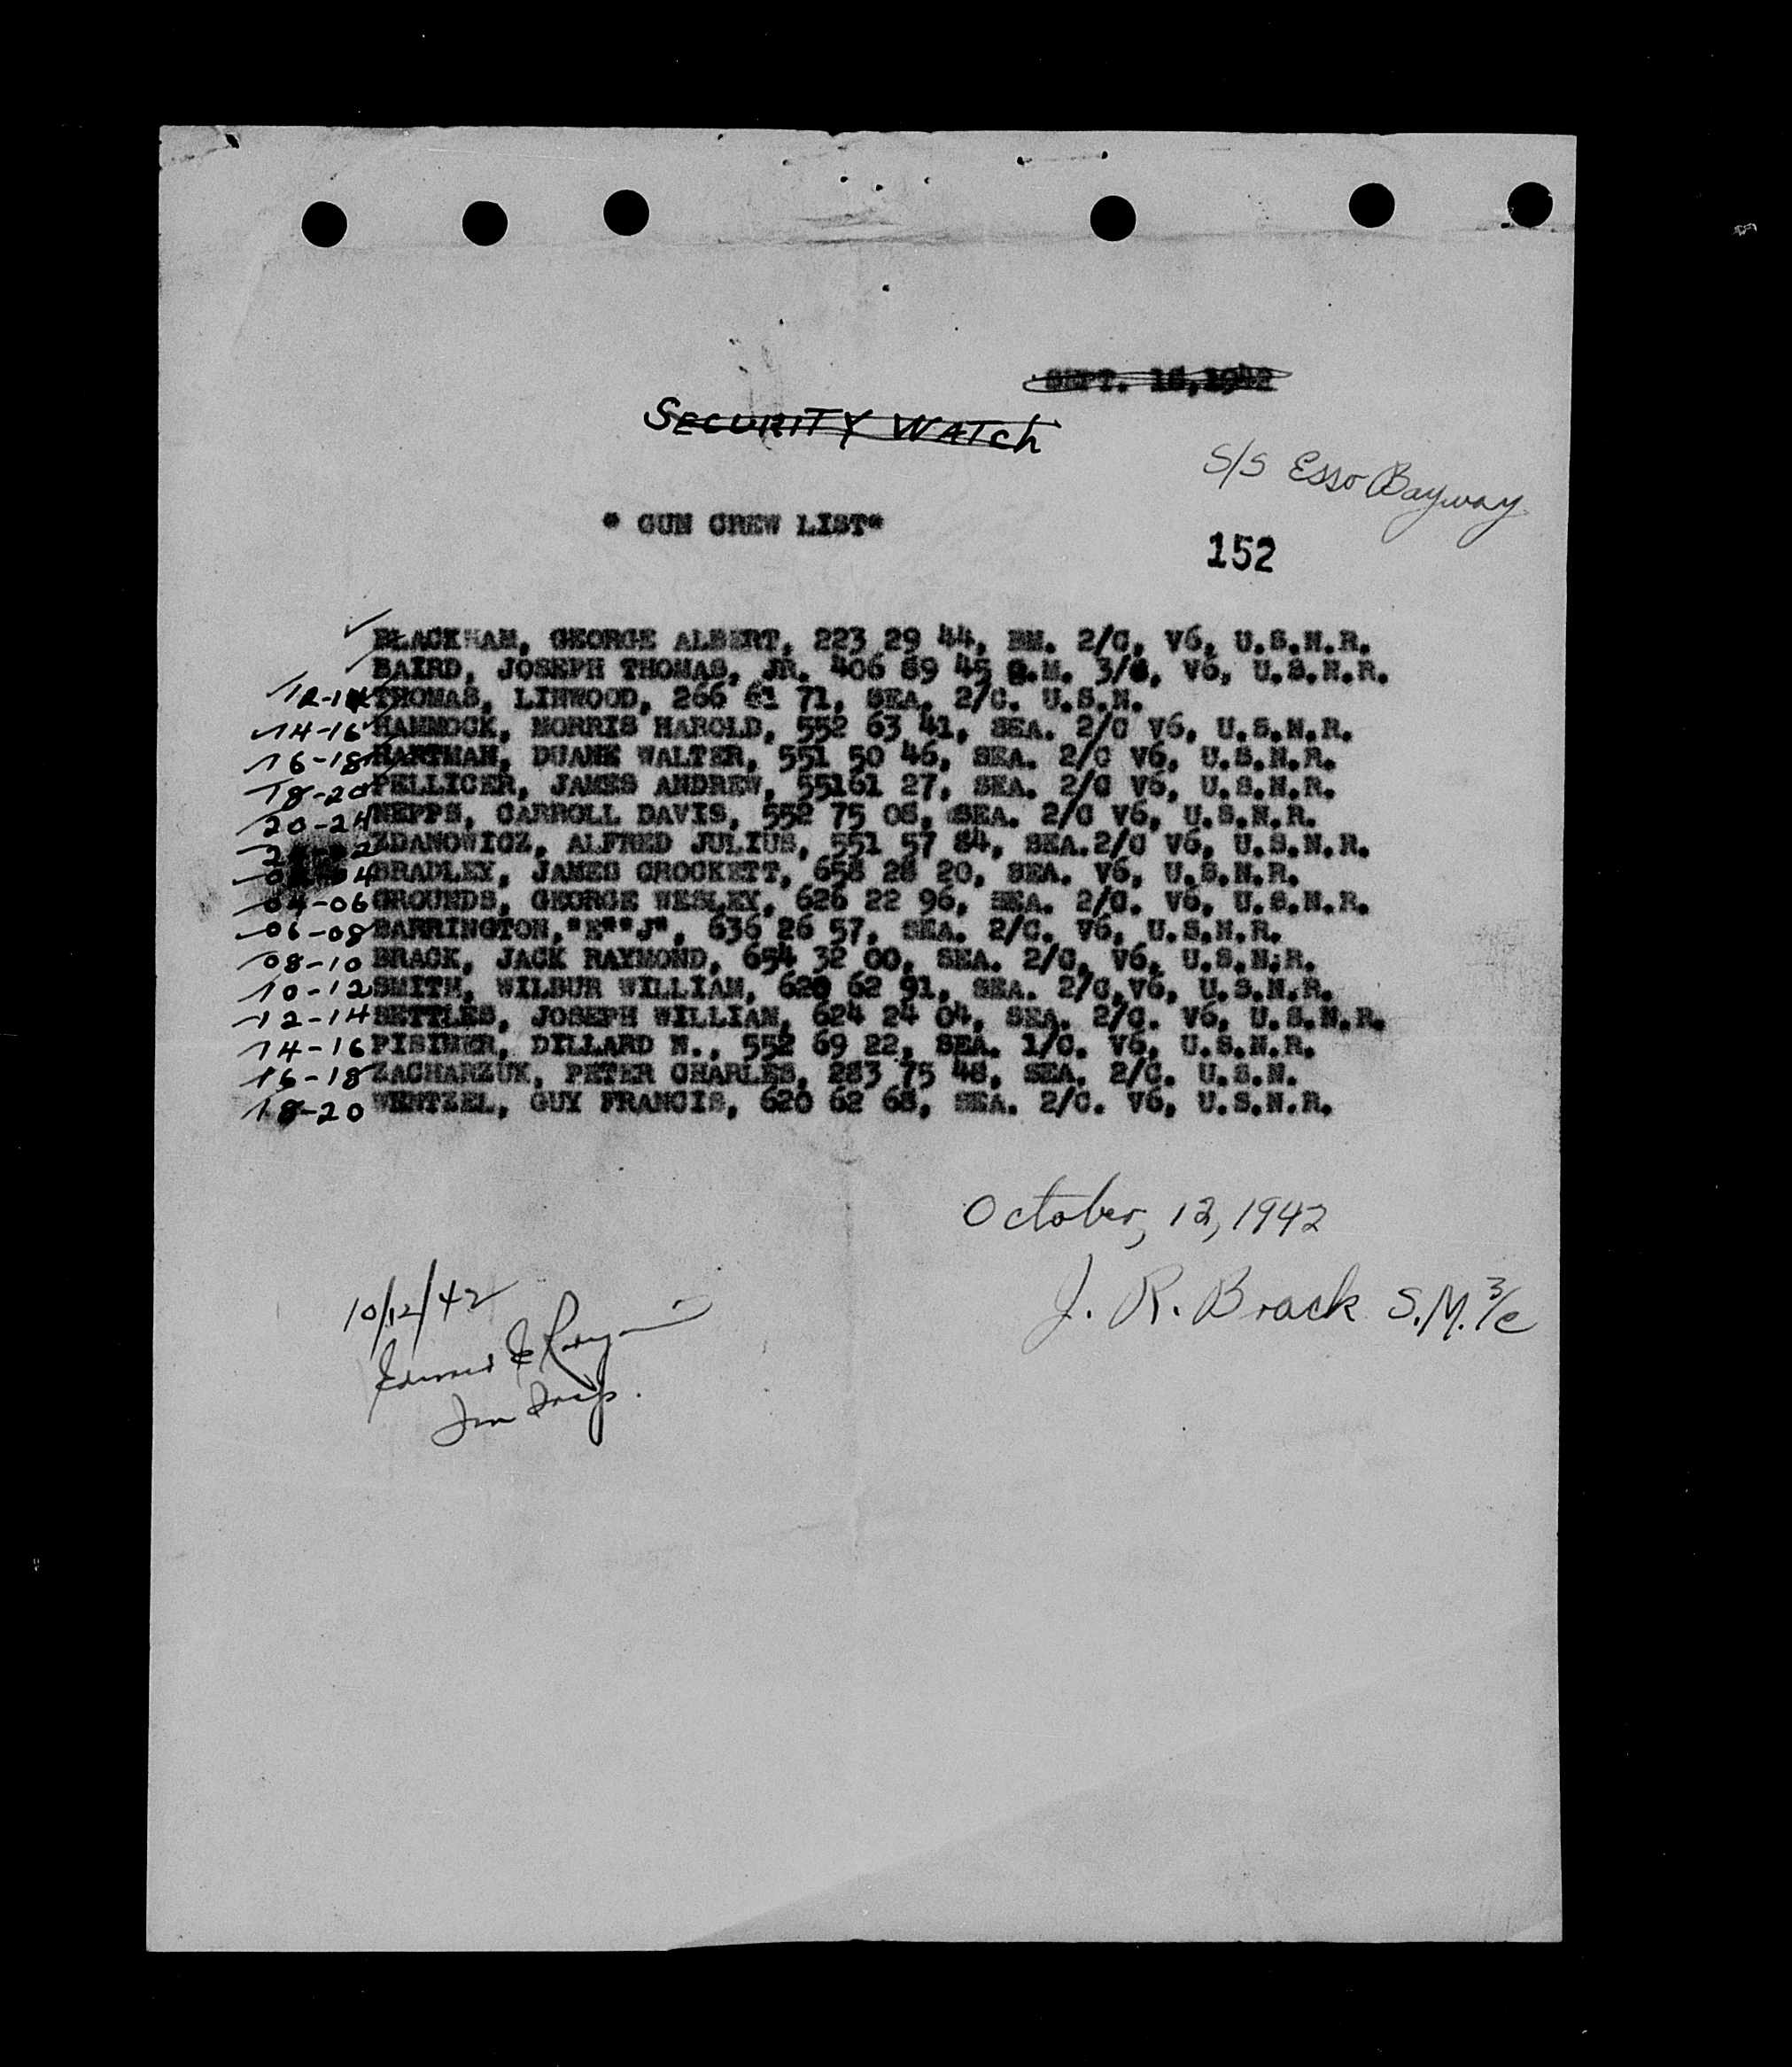 SEPT. 18, 1942
SECURITY WATCH
S/S Esso Bayway
* GUN CREW LIST*
152
BLACKHAM, GEORGE ALBERT, 223 29 44, BM. 2/C, V6, U.S.N.R.
BAIRD, JOSEPH THOMAS, JR. 406 89 45 S.M. 3/C, V6, U.S.N.R.
12-14 THOMAS, LINWOOD, 266 61 71, SEA. 2/C. U.S.N.
14-16 HAMMOCK, MORRIS HAROLD, 552 63 41, SEA. 2/C V6, U.S.N.R.
16-18 HARTMAN, DUANE WALTER, 551 50 46, SEA. 2/C V6, U.S.N.R.
18-20 PELLICER, JAMES ANDREW, 55161 27, SEA. 2/C V6, U.S.N.R.
20-24 NEPPS, CARROLL DAVIS, 552 75 08, SEA. 2/C V6, U.S.N.R.
ZDANOWICZ, ALFRED JULIUS, 551 57 84, SEA.2/C V6, U.S.N.R.
BRADLEY, JAMES CROCKETT, 658 28 20, SEA. V6, U.S.N.R.
04-06 GROUNDS, GEORGE WESLEY, 626 22 96, SEA. 2/C. V6, U.S.N.R.
06-08 BARRINGTON,"E""J", 636 26 57, SEA. 2/C. V6, U.S.N.R.
08-10 BRACK, JACK RAYMOND, 654 32 00, SEA. 2/C, V6, U.S.N.R.
10-12 SMITH, WILBUR WILLIAM, 620 62 91, SEA. 2/C,V6, U.S.N.R.
12-14 SETTLES, JOSEPH WILLIAM, 624 24 04, SEA. 2/C. V6, U.S.N.R.
14-16 PISINER, DILLARD N., 552 69 22, SEA. 1/C. V6, U.S.N.R.
16-18 ZACHARZUK, PETER CHARLES, 283 75 48, SEA. 2/C. U.S.N.
18-20 WENTZEL, GUY FRANCIS, 620 62 68, SEA. 2/C. V6, U.S.N.R.
October, 12, 1942
J. R. Brack S.M. 3/c
10/12/42
Imm Insp.